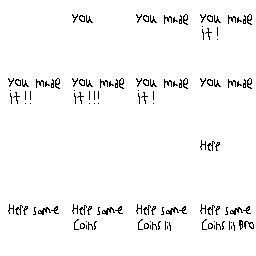 you
you made
you made
it!
you made
it!!
you made
it!!!
you made
it!
you made
Here
Here some
Here some
Coins
Here some
Coins lil
Here some
Coins lil Bro